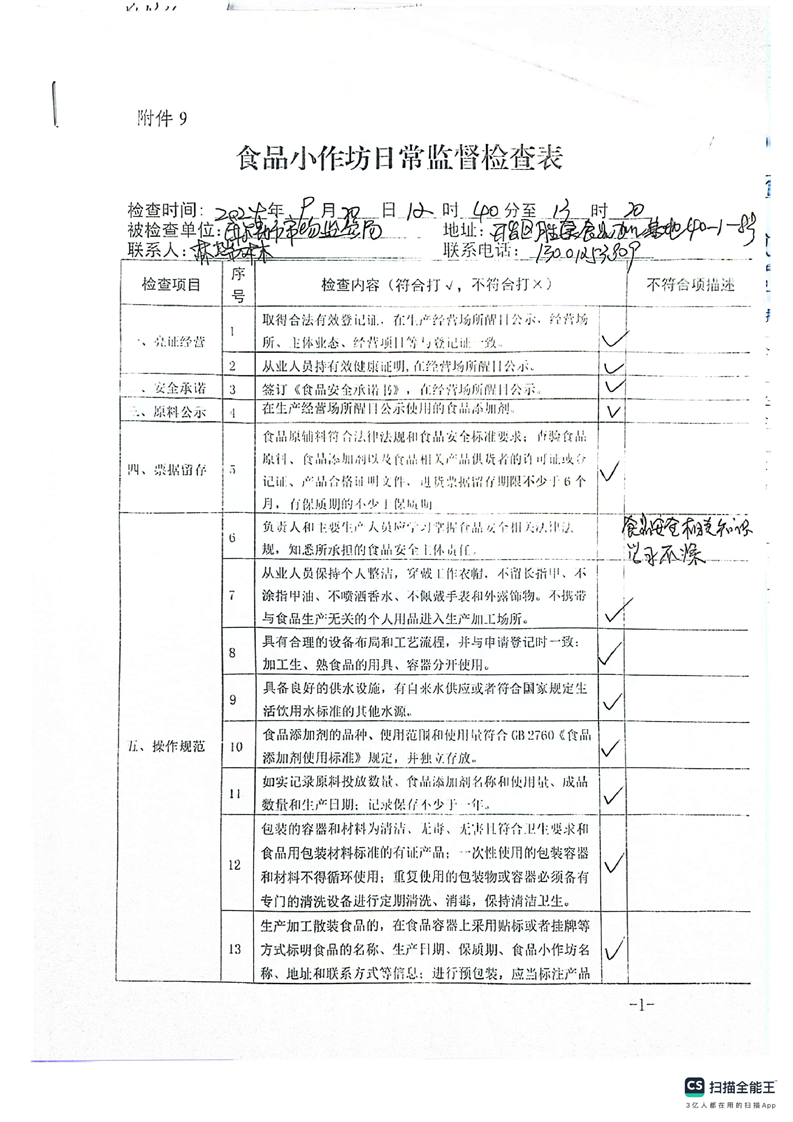 附件 9
食品小作坊日常监督检查表
检查时间: 2024年 9 月 20 日 12 时 40 分至 13 时 20
被检查单位: 市市场监管局 地址: 40-1-8号
联系人: 林 联系电话: 13001253309
检查项目 序号 检查内容(符合打√,不符合打×) 不符合项描述
一、亮证经营 1 取得合法有效登记证,在生产经营场所醒目公示,经营场
所、主体业态、经营项目等与登记证一致。 √
2 从业人员持有效健康证明,在经营场所醒目公示。 √
二、安全承诺 3 签订《食品安全承诺书》,在经营场所醒目公示。 √
三、原料公示 4 在生产经营场所醒目公示使用的食品添加剂。 √
四、票据留存 5 食品原辅料符合法律法规和食品安全标准要求;查验食品
原料、食品添加剂以及食品相关产品供货者的许可证或登
记证、产品合格证明文件,进货票据留存期限不少于 6 个
月,有保质期的不少于保质期 √
五、操作规范 6 负责人和主要生产人员应学习掌握食品安全相关法律法
规,知悉所承担的食品安全主体责任。 食品安全相关知识
7 从业人员保持个人整洁,穿戴工作衣帽,不留长指甲、不
涂指甲油、不喷洒香水、不佩戴手表和外露饰物。不携带
与食品生产无关的个人用品进入生产加工场所。 √
8 具有合理的设备布局和工艺流程,并与申请登记时一致;
加工生、熟食品的用具、容器分开使用。 √
9 具备良好的供水设施,有自来水供应或者符合国家规定生
活饮用水标准的其他水源。 √
10 食品添加剂的品种、使用范围和使用量符合 GB 2760《食品
添加剂使用标准》规定,并独立存放。 √
11 如实记录原料投放数量、食品添加剂名称和使用量、成品
数量和生产日期;记录保存不少于一年。 √
12 包装的容器和材料为清洁、无毒、无害且符合卫生要求和
食品用包装材料标准的有证产品;一次性使用的包装容器
和材料不得循环使用;重复使用的包装物或容器必须备有
专门的清洗设备进行定期清洗、消毒,保持清洁卫生。 √
13 生产加工散装食品的,在食品容器上采用贴标或者挂牌等
方式标明食品的名称、生产日期、保质期、食品小作坊名
称、地址和联系方式等信息;进行预包装,应当标注产品 √
-1-
CS 扫描全能王™
3亿人都在用的扫描App